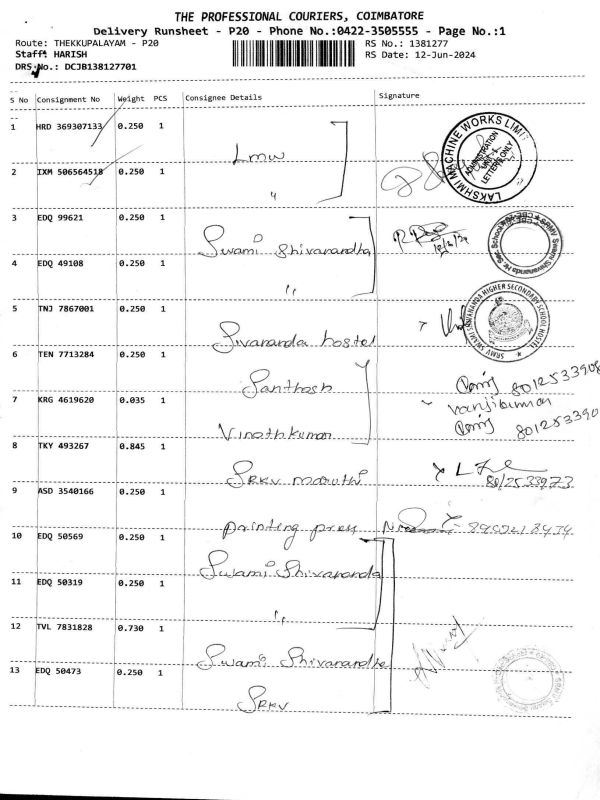 THE PROFESSIONAL COURIERS, COIMBATORE
Delivery Runsheet - P20 - Phone No.:0422-3505555 - Page No.:1
Route: THEKKUPALAYAM - P20 RS No.: 1381277
Staff: HARISH RS Date: 12-Jun-2024
DRS No.: DCJB138127701
S No Consignment No Weight PCS Consignee Details Signature
1 HRD 369307133 0.250 1
Lmw
2 IXM 506564518 0.250 1
"
3 EDQ 99621 0.250 1
Swami Shivanandha
4 EDQ 49108 0.250 1
"
5 TNJ 7867001 0.250 1
Sivananda hostel
6 TEN 7713284 0.250 1
Santhosh 8012533908
7 KRG 4619620 0.035 1
Vinothkumar
8 TKY 493267 0.845 1
SRKV maruthi
9 ASD 3540166 0.250 1
printing press
10 EDQ 50569 0.250 1
Swami Shivananda
11 EDQ 50319 0.250 1
"
12 TVL 7831828 0.730 1
Swami Shivanandha
13 EDQ 50473 0.250 1
SRKV
LAKSHMI MACHINE WORKS LIMIT
ADMINISTRATION
UNIT-I
LETTERS ONLY
SRMV SWAMI SHIVANANDA HIGHER SECONDARY SCHOOL HOSTEL